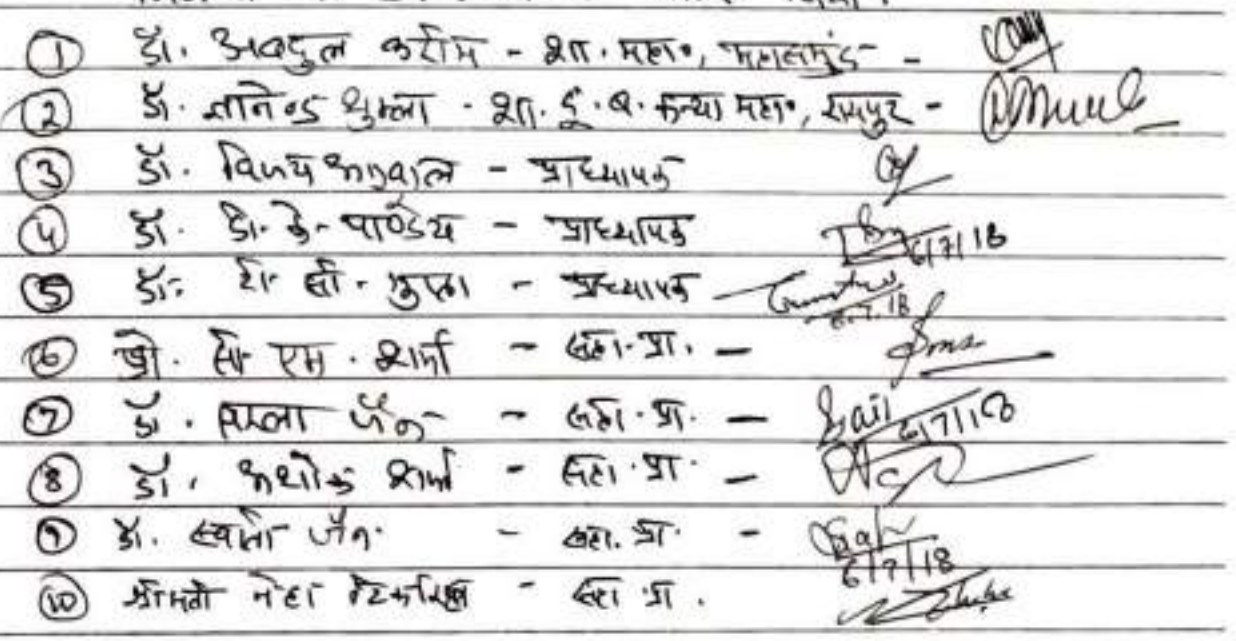 ① डॉ. अब्दुल करीम - शा. महा॰, महासमुंद -
② डॉ. ज्ञानेन्द्र शुक्ला - शा. दू. ब. कन्या महा॰, रायपुर -
③ डॉ. विजय अग्रवाल - प्राध्यापक
④ डॉ. डी. के. पाण्डेय - प्राध्यापक 6/7/18
⑤ डॉ. टी. सी. गुप्ता - प्राध्यापक - 6.7.18
⑥ प्रो. सी. एम. शर्मा - सहा. प्रा. -
⑦ डॉ. सरला जैन - सहा. प्रा. - 6/7/18
⑧ डॉ. अशोक शर्मा - सहा. प्रा. -
⑨ डॉ. स्वाति जैन - सहा. प्रा. - 6/7/18
⑩ श्रीमती नेहा - सहा प्रा.